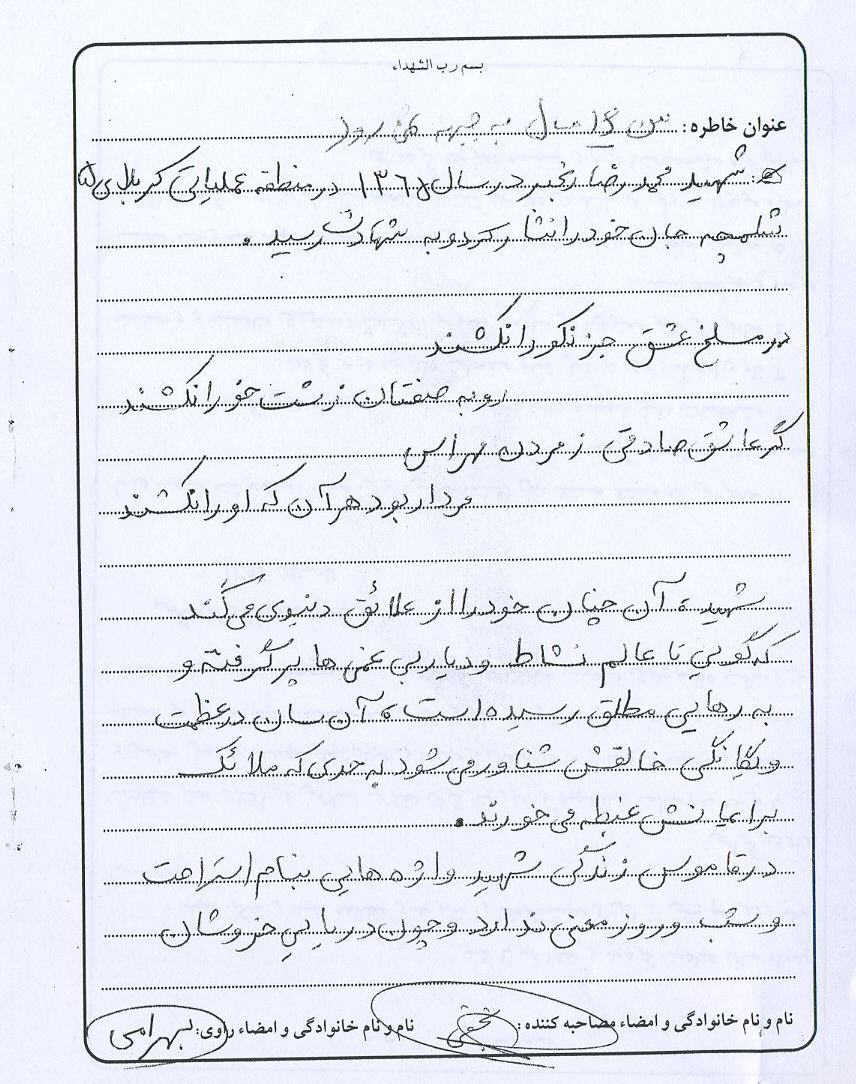 بسم رب الشهداء
عنوان خاطره: به جبهه می رود
شهید محمد رضا رنجبر در سال ۱۳۶۵ در منطقه عملیاتی کربلای ۵
شلمچه جان خود را نثار کرد و به شهادت رسید.
در مسلخ عشق جز نکو را نکشند
روبه صفتان زشت خو را نکشند
گر عاشق صادقی ز مردن مهراس
مردار بود هر آن که او را نکشند
شهید، آن چنان خود را از علائق دنیوی می کند
که گویی تا عالم نشاط و دیار بی غمی ها پر گرفته و
به رهایی مطلق رسیده است، آن سان در عظمت
و یگانگی خالقش شناور می شود به حدی که ملائک
بر ایمانش غبطه می خورند.
در قاموس زندگی شهید واژه هایی بنام استراحت
و شب و روز معنی ندارد و چون دریایی خروشان
نام و نام خانوادگی و امضاء مصاحبه کننده: نام و نام خانوادگی و امضاء راوی: بهرامی